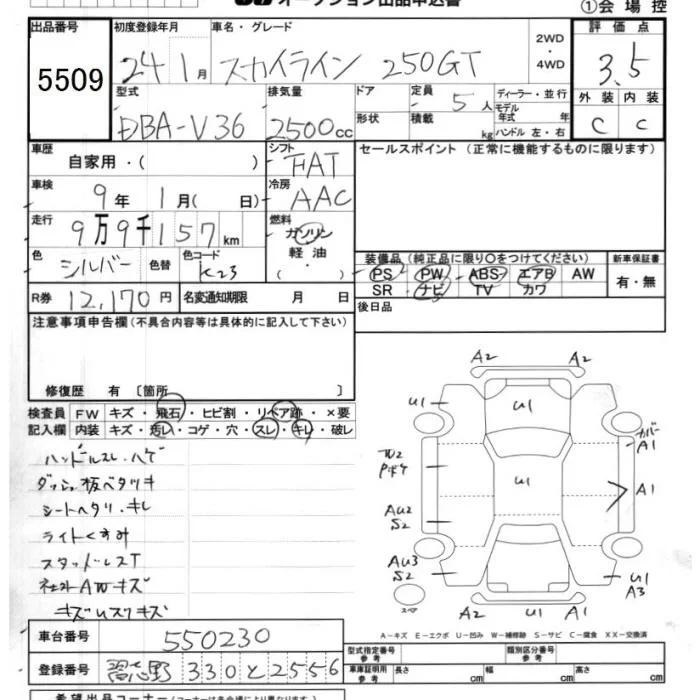 オークション出品申込書
①会場控
出品番号 初度登録年月 車名・グレード 2WD・4WD 評価点
5509 24 1月 スカイライン 250GT 3.5
型式 排気量 ドア 定員 5人 ディーラー・並行 外装 内装
DBA-V36 2500cc 形状 積載 kg モデル年式 年 ハンドル 左・右 C C
車歴 自家用・( ) シフト FAT セールスポイント (正常に機能するものに限ります)
車検 9年 1月( 日) 冷房 AAC
走行 9万9千157km 燃料 ガソリン 軽油 ・( )
色 シルバー 色替 色コード K23
装備品 (純正品に限り○をつけてください) 新車保証書
PS PW ABS エアB AW 有・無
SR ナビ TV カワ
R券 12,170円 名変通知期限 月 日 後日品
注意事項申告欄(不具合内容等は具体的に記入して下さい)
修復歴 有 〔箇所 〕
検査員 FW キズ・飛石・ヒビ割・リペア跡・×要
記入欄 内装 キズ・汚レ・コゲ・穴・スレ・キレ・破レ
ハンドルスレ・ハゲ
ダッシュ板ベタツキ
シートヘタリ・キレ
ライトくすみ
スタッドレスT
社外AWキズ
A2 A2
U1 U1
カバー A1
U1 A1
AU2 S2
AU3 S2
U1 A3
スペア
A2 U1 A1
A-キズ E-エクボ U-凹み W-補修跡 S-サビ C-腐食 XX-交換済
車台番号 550230
型式指定番号 参考 類別区分番号 参考
登録番号 習志野 330 と 2556
車庫証明用 参考 長さ cm 幅 cm 高さ cm
希望出品コーナー(コーナーは各会場により異なります)